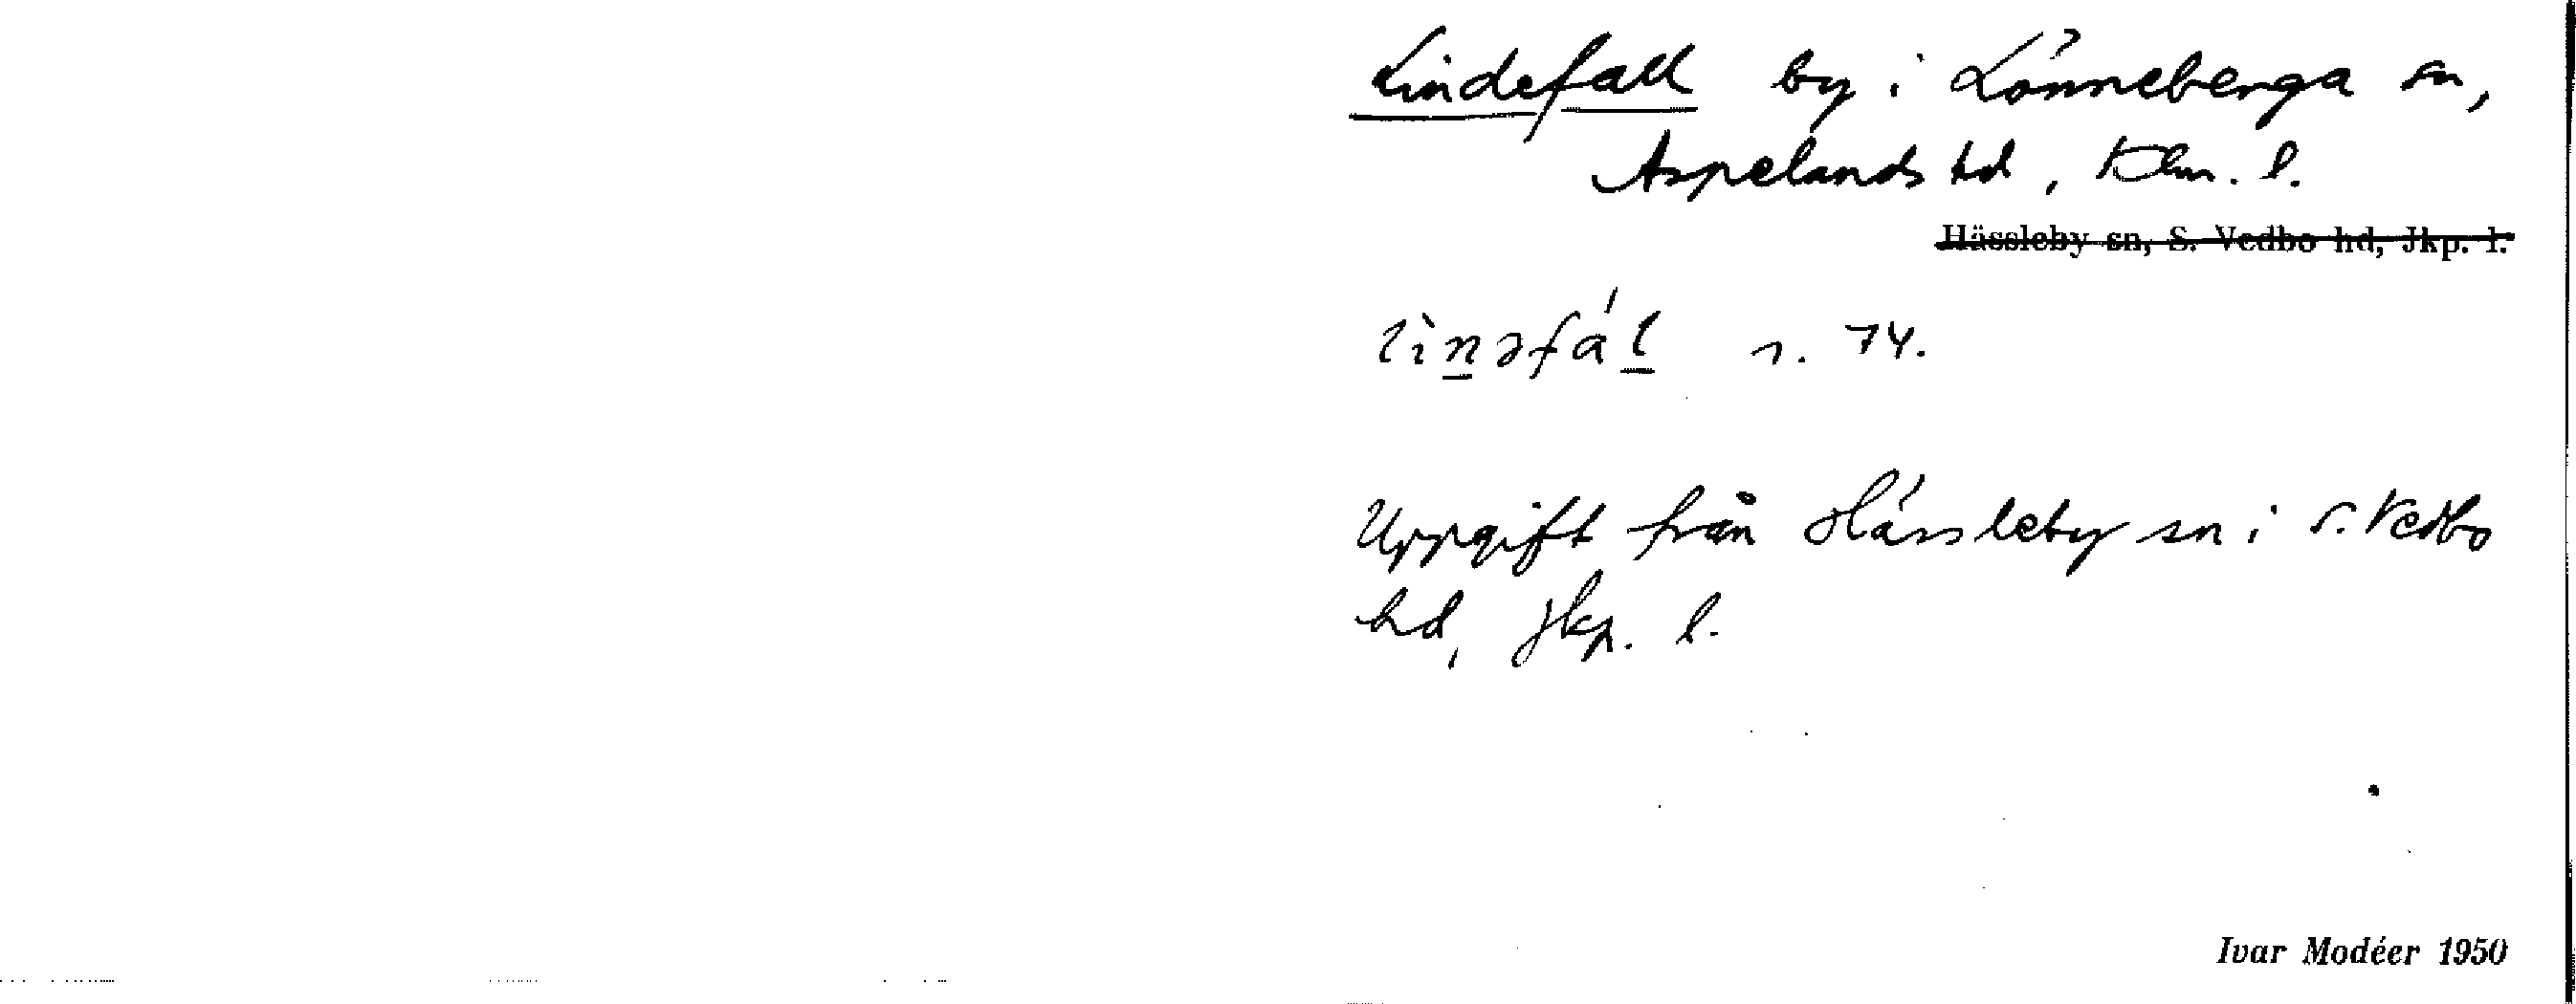 Lindefall by i Lönneberga sn,
Aspelands hd, Klm. l.
Hässleby sn, S. Vedbo hd, Jkp. l.
lìnəfál s. 74.
Uppgift från Hässleby sn i S. Vedbo
hd, Jkp. l.
Ivar Modéer 1950